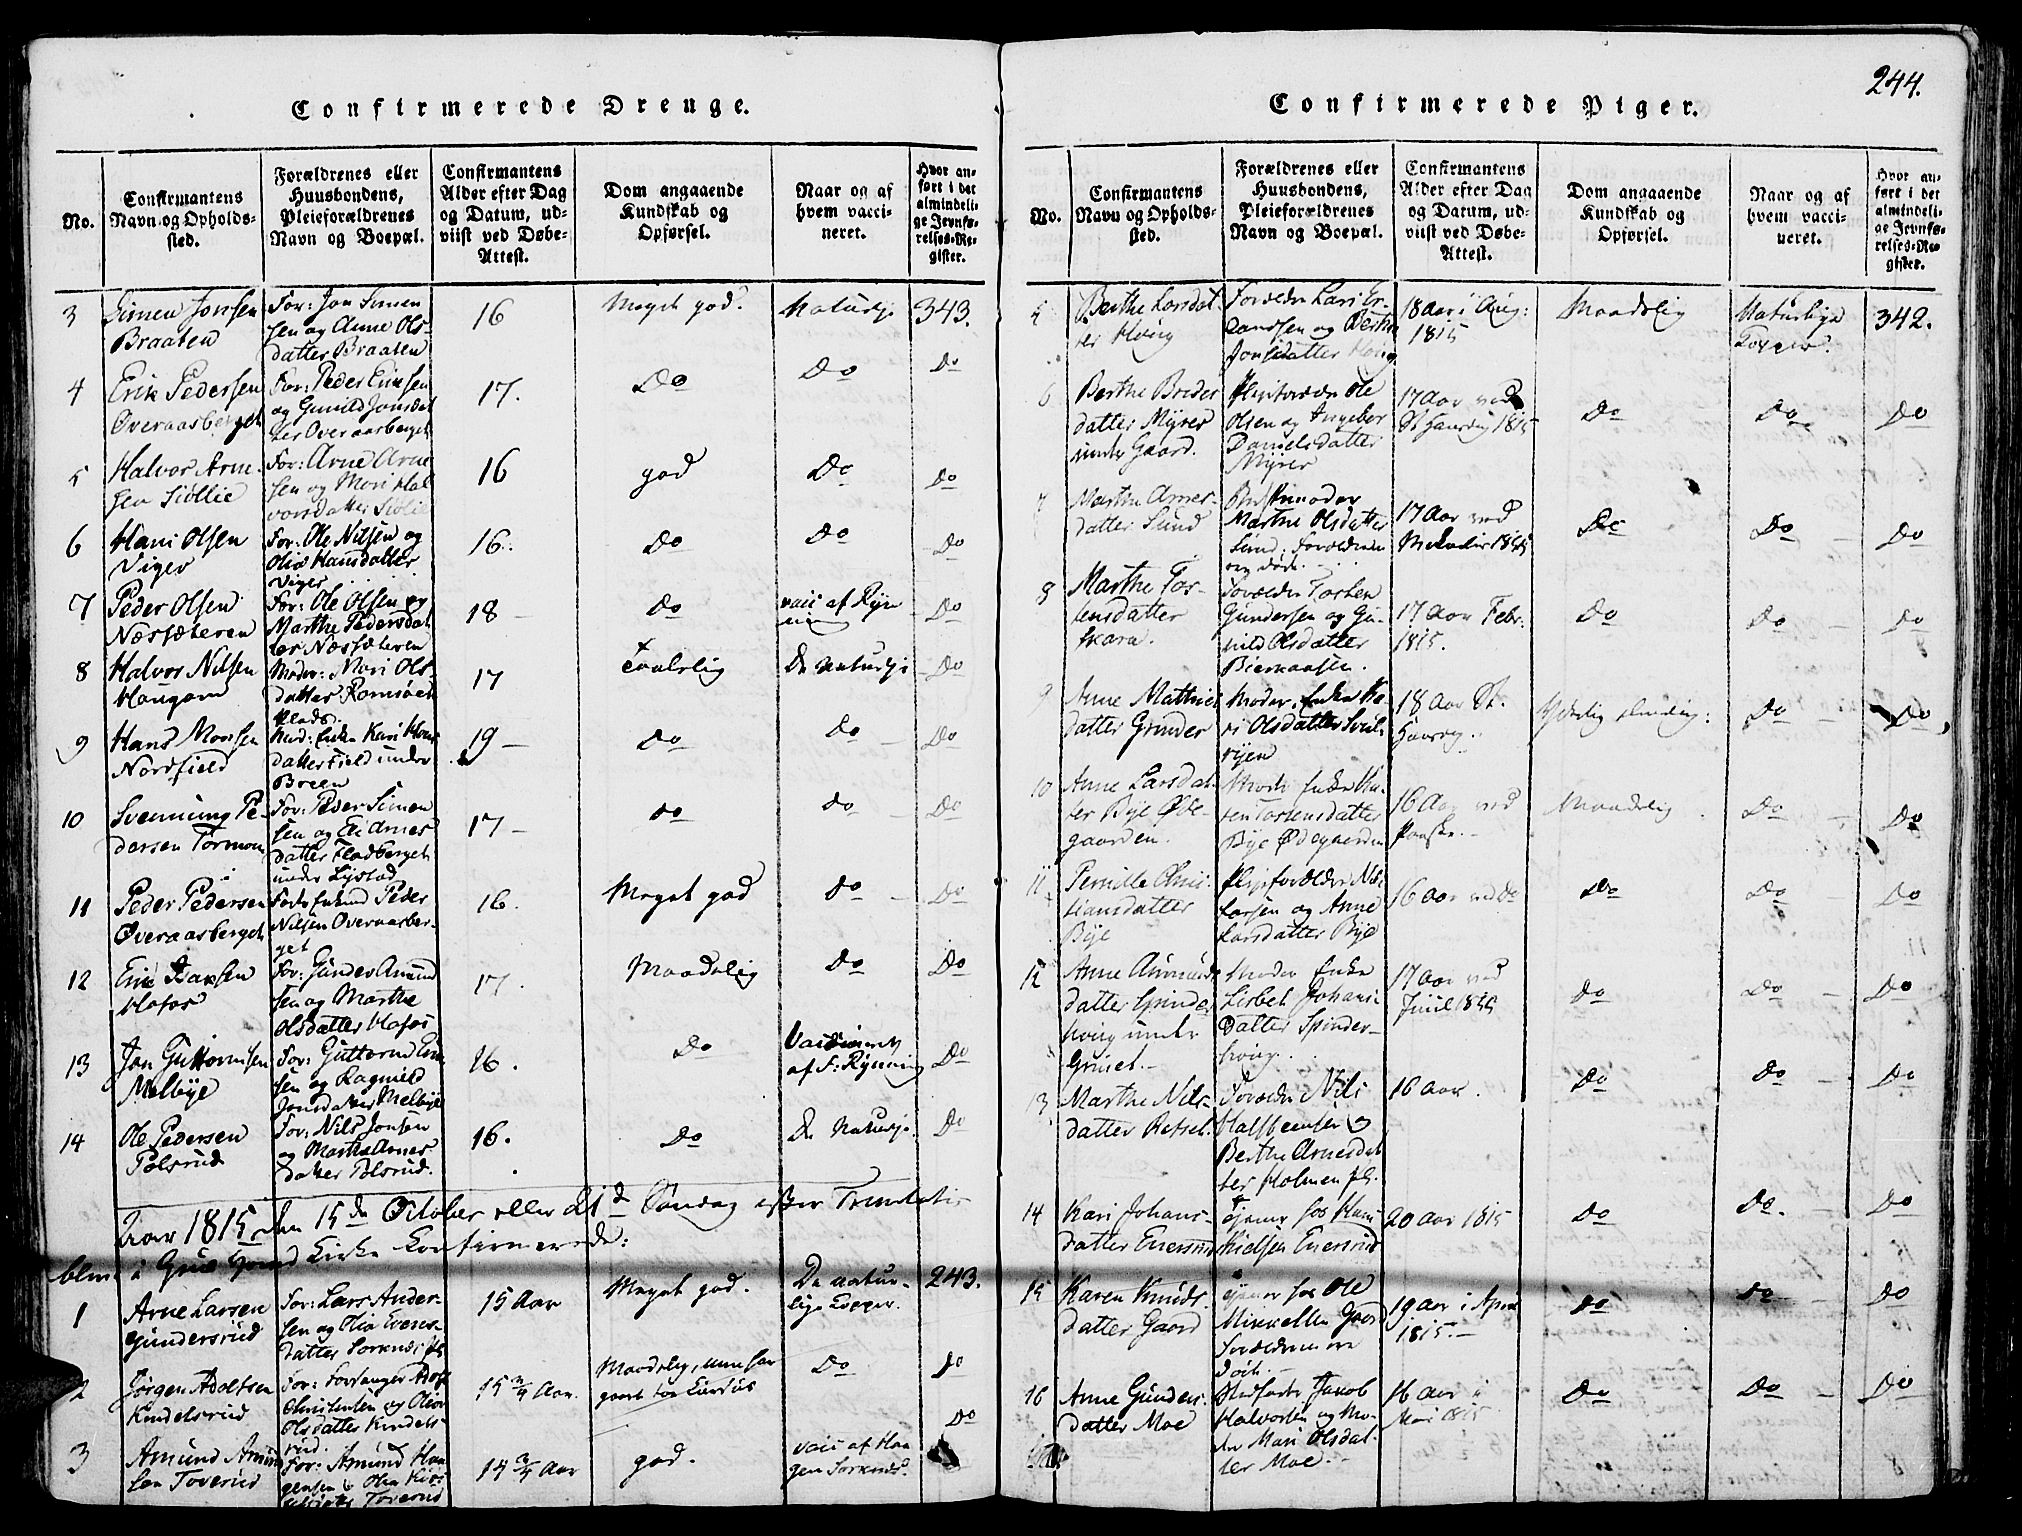 244.
Confirmerede Drenge.
No.
Confirmantens
Navn og Opholds-
sted.
Forældrenes eller
Huusbondens,
Pleieforældrenes
Navn og Boepæl.
Confirmantens
Alder efter Dag
og Datum, ud-
viist ved Døbe-
Attest.
Dom angaaende
Kundskab og
Opførsel.
Naar og af
hvem vacci-
neret.
Hvor an-
ført i det
almindeli-
ge Jevnfø-
relses-Re-
gister.
3
Simen Jonsen
Braaten
For: Jon Simen
sen og Anne Ols-
datter Braaten
16
Meget god.
Naturlje
343.
4
Erik Pedersen
Overaasberget
For: Peder Erichsen
og Gunild Jonsdat
ter Overaasberget
17.
Do
Do
Do
5
Halvor Arne-
sen Siøllie
For: Arne Arne
sen og Mari Hal
vorsdatter Siøllie
16
god
Do
Do
6
Hans Olsen
Viger
For: Ole Nilsen og
Olia Hansdatter
Viger
16.
Do
Do
Do
7
Peder Olsen
Næssæteren
For: Ole Olsen og
Marthe Pedersdat
ter Næssæteren
18
Do
vacc af Ryn
ning
Do
8
Halvor Nilsen
Haugern
Moder: Mari Ols
datter Romsøen
Plads.
17
Taalelig
De Naturlje
Do
9
Hans Monsen
Nordfield
Mod: Enke Kari Hans
datter Field under
Breen
19
Do
Do
Do
10
Svenning Pe-
dersen Tormoen
For: Peder Simen
sen og Eli Arnes
datter Fladberget
under Lystad
17
Do
Do
Do
11
Peder Pedersen
Øveraasberget
Peder
Nilsen Overaasber-
get
16.
Meget god
Do
Do
12
Erik Isaksen
Hofos
For: Gunder Amund
sen og Marthe
Olsdatter Hofos
17.
Maadelig
Do
Do
13
Jon Guttormsen
Melbye
For: Guttorm
sen og Ragnild
Jonsdatter Melbye
16.
Do
Vaccineret
af F: Rynning
Do
14
Ole Pedersen
Polsrud
For: Nils Jonsen
og Marthe Arnes
datter Polsrud.
16.
Do
De Naturlje
Do
Aar 1815 den 15de October eller 21de Søndag efter Trinitatis
blev i Grue Kirke Confirmerede:
1
Arne Larsen
Gundersrud
For: Lars Ander-
sen og Olia Evens-
datter
15 Aar
Meget god.
De natur-
lige Kopper.
243.
2
Jørgen Adolfsen
Kindelsrud
For: Forsanger Adolf
Christensen og Olia
Olsdatter Kindels-
rud.
15 3/4 Aar.
Maadelig,
Do
Do
3
Amund Amund
sen Toverud
For: Amund Haa
gensen og Olia
Toverud
14 3/4 Aar
god.
vacc af Haa
gen Sorknes.
Do
Confirmerede Piger.
No.
Confirmantens
Navn og Opholds-
sted.
Forældrenes eller
Huusbondens,
Pleieforældrenes
Navn og Boepæl.
Confirmantens
Alder efter Dag
og Datum, ud-
viist ved Døbe-
Attest.
Dom angaaende
Kundskab og
Opførsel.
Naar og af
hvem vacci-
neret.
Hvor an-
ført i det
almindeli-
ge Jevnfø-
relses-Re-
gister.
5
Berthe Larsdat
ter Houg
Forældre Lars Er-
landsen og Berthe
Jonsdatter Houg
18 Aar i Aug:
1815
Maadelig
Naturlige
Kopper.
342.
6
Berthe Breder
datter Myrer
under Gaard.
Pleieforældre Ole
Olsen og Ingeborg
Danielsdatter
Myrer
17 Aar ved
St Hansdag 1815
Do
Do
Do
7
Marthe Arnes-
datter Lund
Marthe Olsdatter
Lund. Forældrene
ere døde.
17 Aar ved
1815
Do
Do
Do
8
Marthe Tos-
tensdatter
Skara.
Forældre Tosten
Gundersen og Gu-
nild Olsdatter
Bieknaasen.
17 Aar Febr:
1815.
Do
Do
Do
9
Anne Mathis
datter Grinder
Moder, Enke Ka-
ri Olsdatter Svul-
ryen
18 Aar St.
Hansdag.
Do
Do
10
Anne Larsdat-
ter Bye Øde-
gaarden.
Moder Enke Ka-
ren Tostensdatter
Bye Ødegaarden
16 Aar ved
Paaske.
Maadelig
Do
Do
11
Pernille Chris-
tiansdatter
Bye
Pleieforældre
Larsen og Anne
Larsdatter Bye
16 Aar ved Do
Do
Do
Do
12
Anne Amunds
datter Spinder
houg under
Grinet.
Moder Enke
Lisbet Johans
datter Spinder-
houg.
17 Aar ved
Juul 1815
Do
Do
Do
13
Marthe Nils-
datter Refset.
Forældre Nils
Halsteensen og
Berthe Arnesdat
ter Holmen pl.
16 Aar.
Do
Do
Do
14
Kari Johans-
datter Enersrud
tjener hos Hans
Nielsen Enersrud
20 Aar 1815
Do
Do.
Do
15
Karen Knuds-
datter Gaard
tjener hos Ole
Mikkelsen Gaard
Forældrene ere
døde.
19 Aar i April
1815.
Do
Do
Do
16
Anne Gunders-
datter Moe
Stedfader Jakob
Halvorsen og Mo-
der Mari Olsdat-
ter Moe.
16 Aar i
Mai 1815
Do
Do
Do